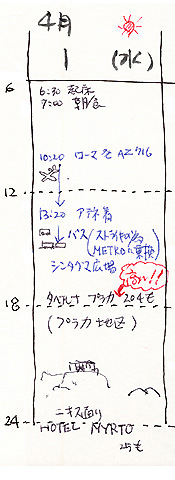 4月
1 (水)
6
6:30 起床
7:00 朝食
10:20 ローマ発 AZ716
12
13:20 アテネ着
バス(ストライキの為
METROに乗換)
シンタグマ広場
高い!!
18
タベルナ プラカ 204€
(プラカ地区)
24
ニキス通り
HOTEL MYRTO
25€